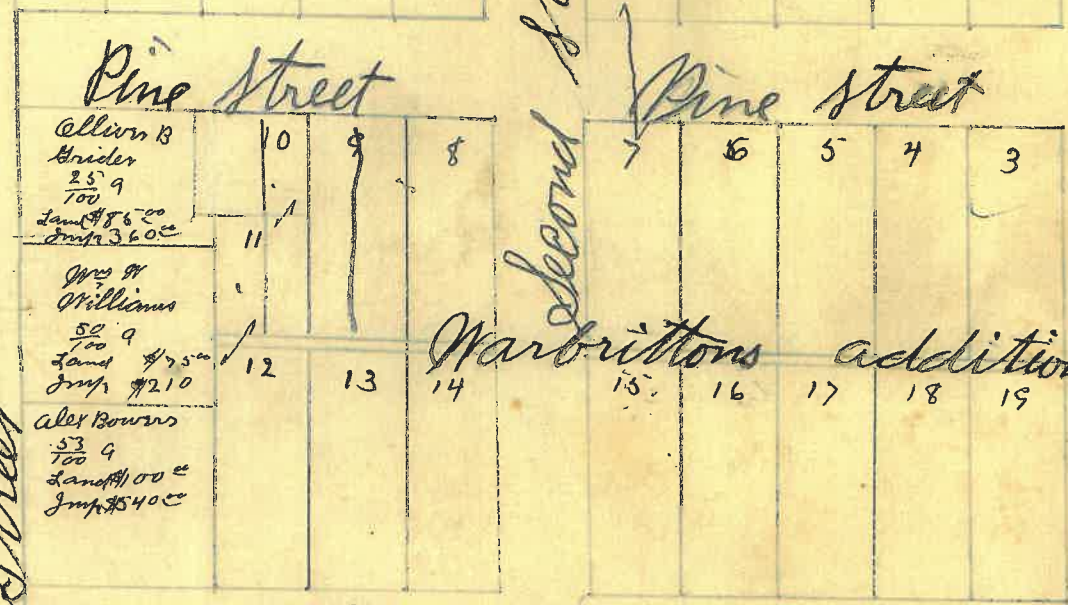 Pine Street
Second
Pine Street
Ollivir B
Grider
25/100 a
Land $85.00
Imp 360.00
10
9
8
7
6
5
4
3
11
Wm W
Williams
50/100 a
Land $75.00
Imp $210
Warbrittons addition
12
13
14
15
16
17
18
19
Alex Bowers
53/100 a
Land $100.00
Imp $540.00
Street